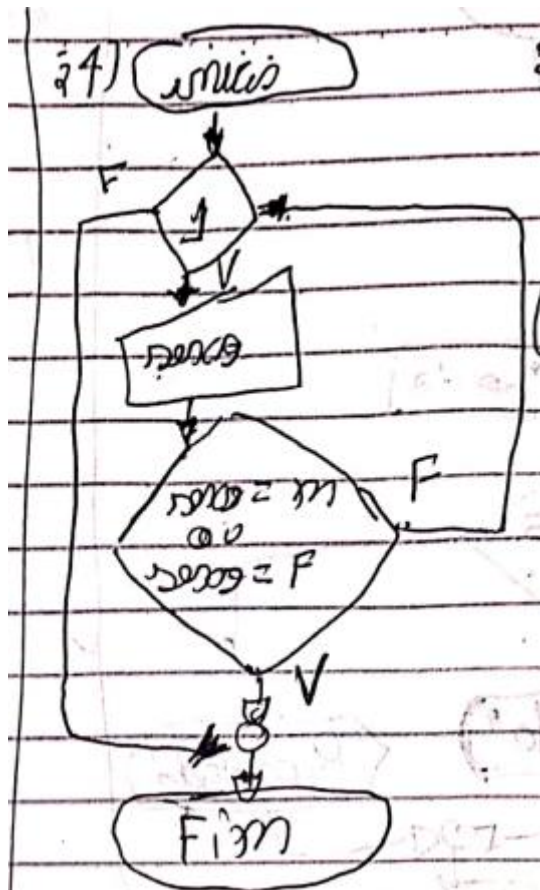 24) inicio
F
1
V
sexo
sexo = m
ou
sexo = F
F
V
Fim